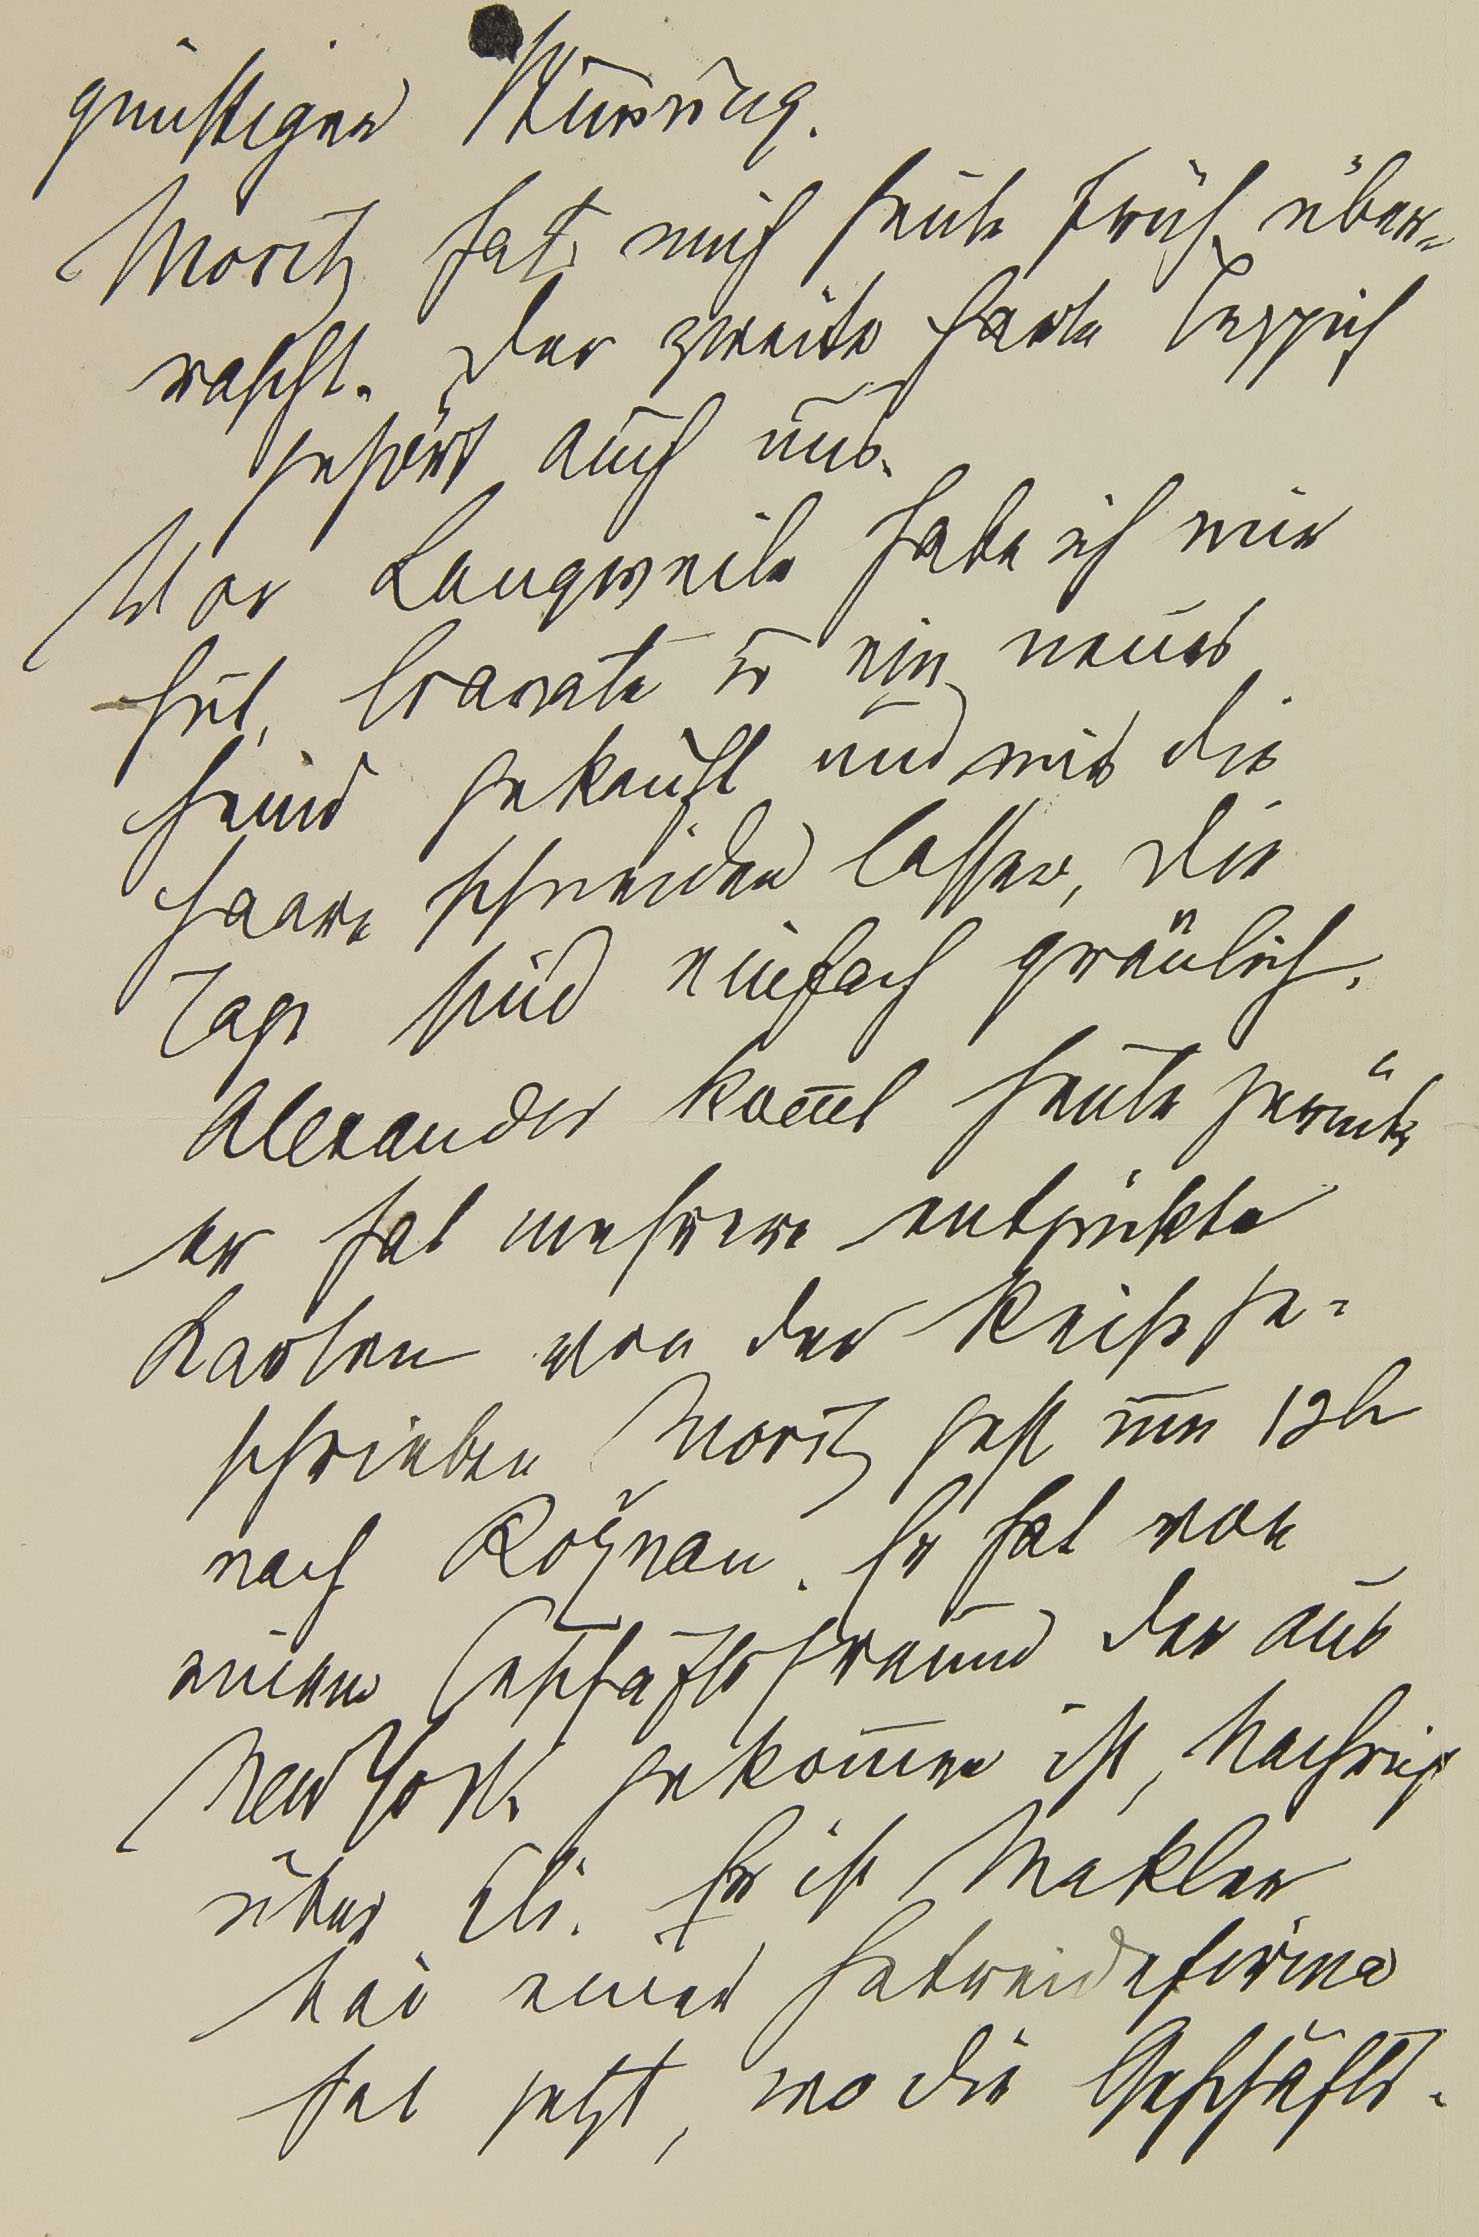 günstigen Stimmung.
Moritz hat mich heute früh über-
rascht. Der zweite harte Teppich
gehört auch uns.
Vor Langweile habe ich mir
Hut, Cravate u ein neues
Hemd gekauft und mir die
Haare schneiden lassen, die
Tage sind einfach gräulich.
Alexander kommt heute zurück
er hat mehrere entzückte
Karten von der Reise ge-
schrieben Moritz geht um 12h
nach Rožnau. Er hat von
einem Geschäftsfreund der aus
New York gekommen ist, Nachricht
über Eli. Er ist Makler
bei einer Getreidefirma
hat jetzt, wo die Geschäfts-